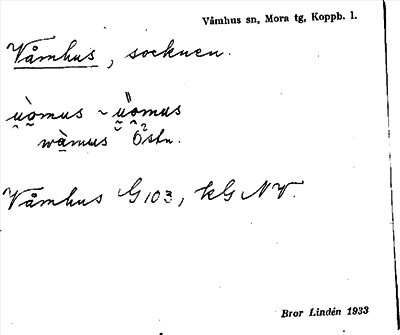 Våmhus sn, Mora tg, Koppb. l.
Våmhus, socknen.
u̯òmus ~ ṷ̀omus
wàmus Östn.
Våmhus G 103, kG NV.
Bror Lindén 1933